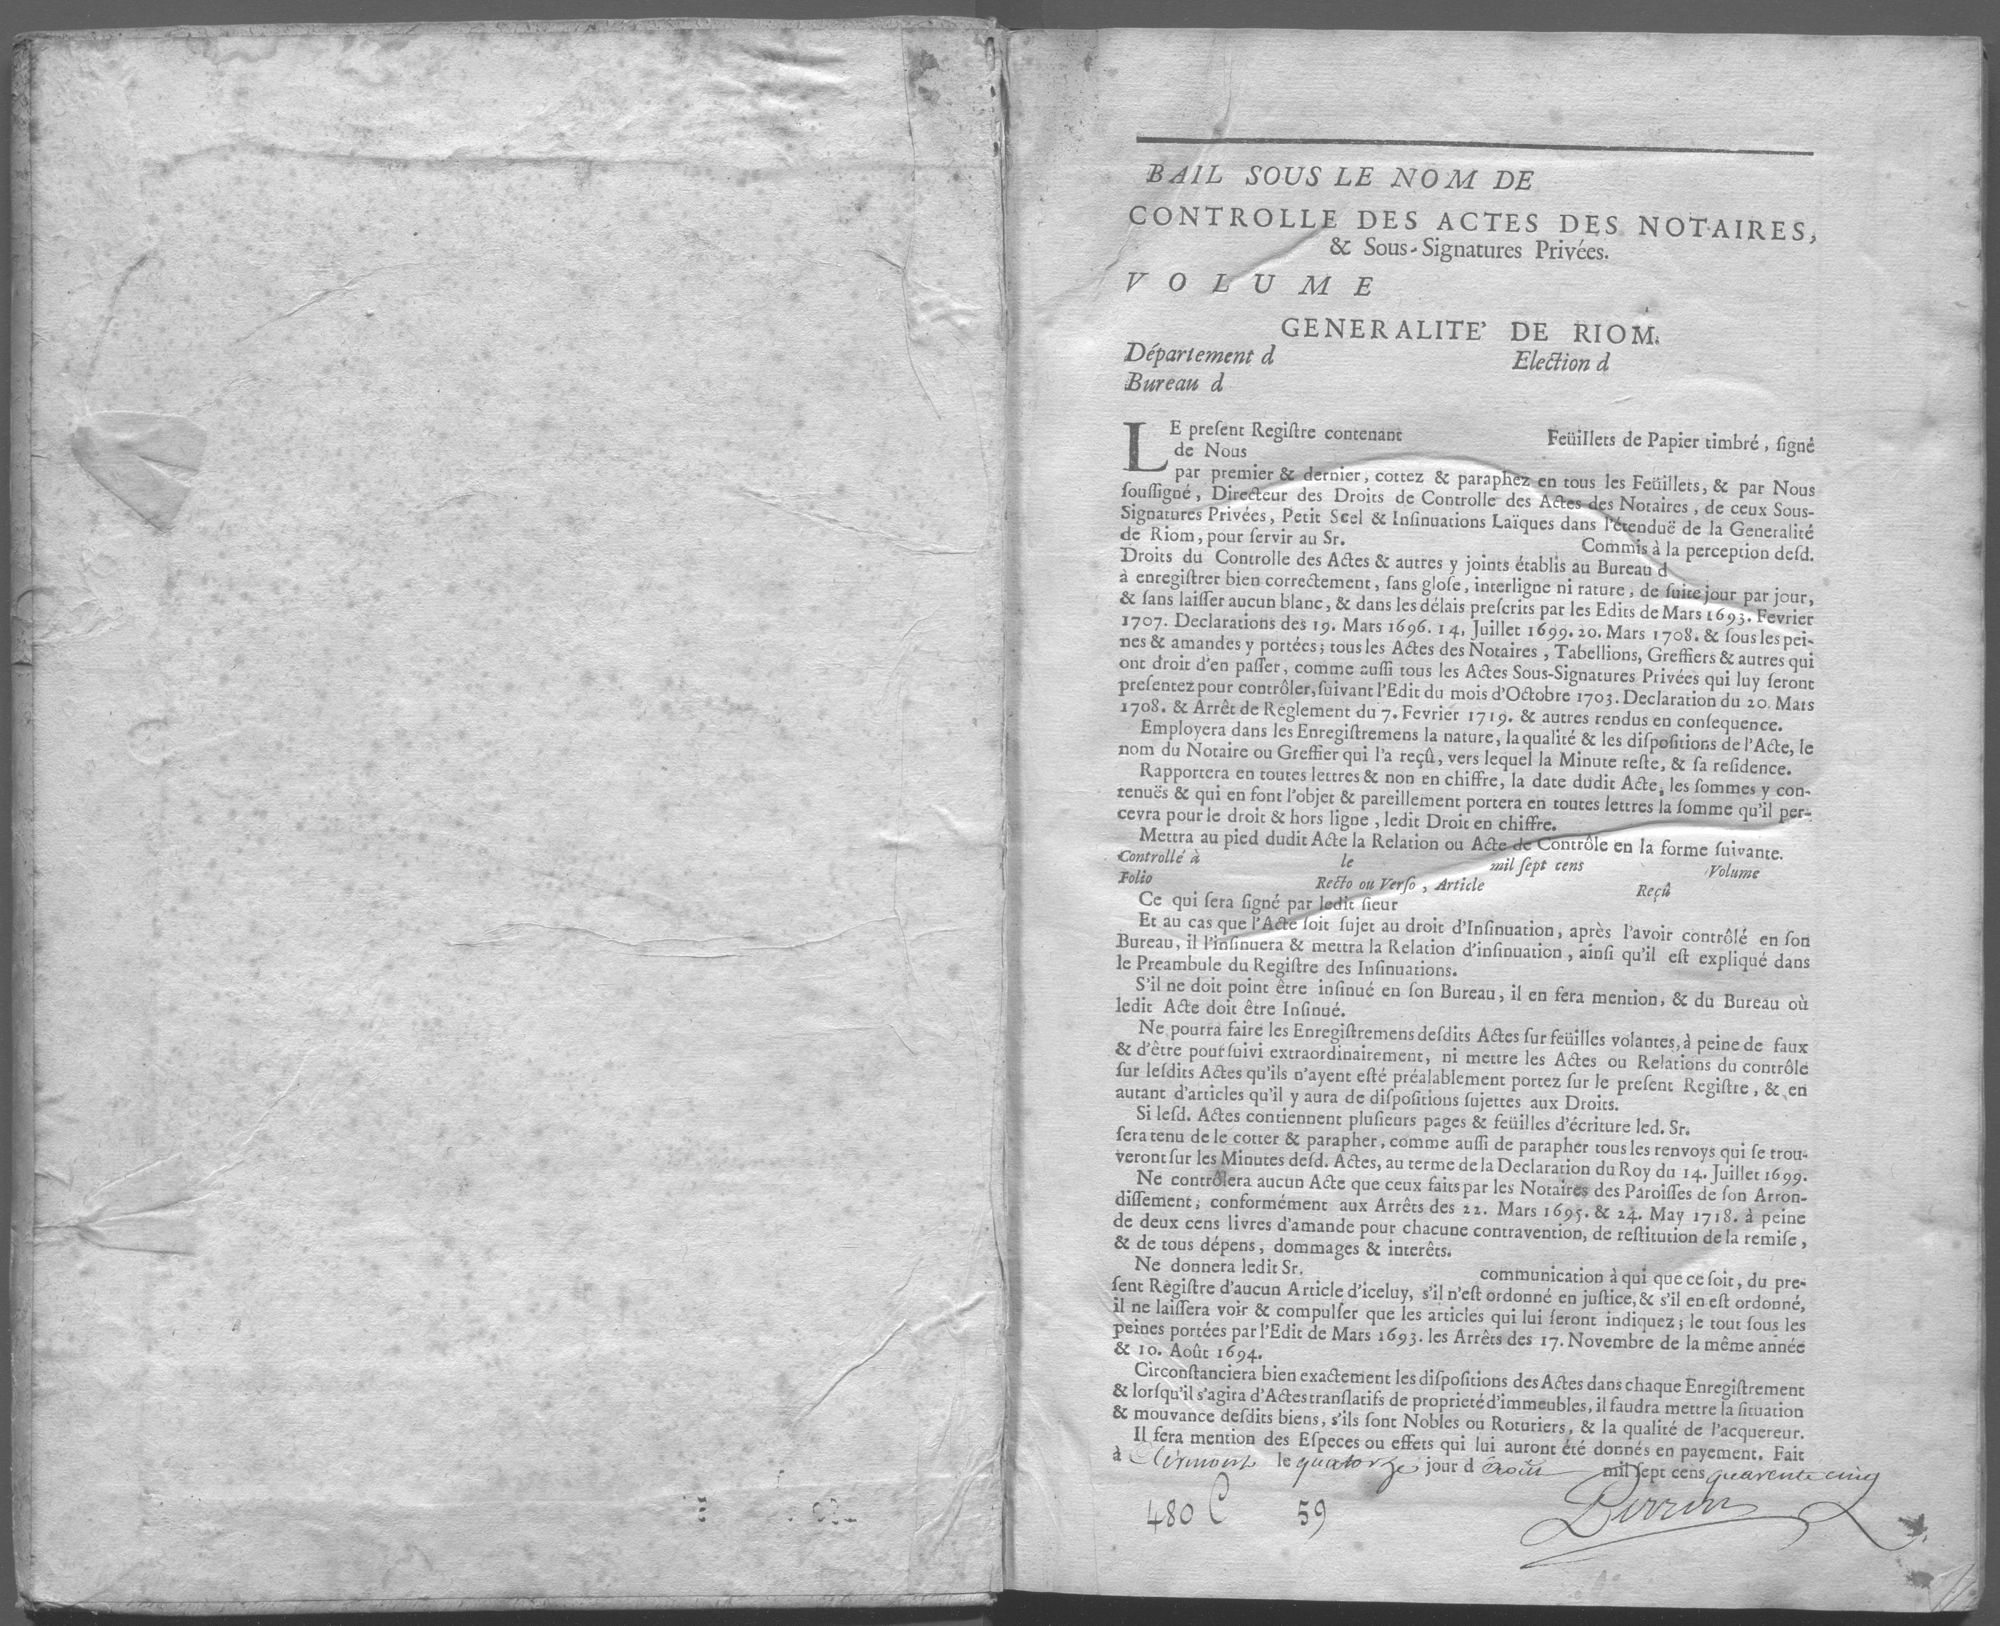 BAIL SOUS LE NOM DE
CONTROLLE DES ACTES DES NOTAIRES,
& Sous-Signatures Privées.
VOLUME
GENERALITE' DE RIOM.
Département d Election d
Bureau d
LE preſent Regiſtre contenant Feüillets de Papier timbré, ſigné
de Nous
par premier & dernier, cottez & paraphez en tous les Feüillets, & par Nous
ſouſſigné, Directeur des Droits de Controlle des Actes des Notaires, de ceux Sous-
Signatures Privées, Petit Scel & Inſinuations Laïques dans l'étenduë de la Generalité
de Riom, pour ſervir au Sr. Commis à la perception deſd.
Droits du Controlle des Actes & autres y joints établis au Bureau d
à enregiſtrer bien correctement, ſans gloſe, interligne ni rature, de ſuite jour par jour,
& ſans laiſſer aucun blanc, & dans les délais preſcrits par les Edits de Mars 1693. Fevrier
1707. Declarations des 19. Mars 1696. 14. Juillet 1699. 20. Mars 1708. & ſous les pei-
nes & amandes y portées; tous les Actes des Notaires, Tabellions, Greffiers & autres qui
ont droit d'en paſſer, comme auſſi tous les Actes Sous-Signatures Privées qui luy ſeront
preſentez pour contrôler, ſuivant l'Edit du mois d'Octobre 1703. Declaration du 20. Mars
1708. & Arrêt de Reglement du 7. Fevrier 1719. & autres rendus en conſequence.
Employera dans les Enregiſtremens la nature, la qualité & les diſpoſitions de l'Acte, le
nom du Notaire ou Greffier qui l'a reçû, vers lequel la Minute reſte, & ſa reſidence.
Rapportera en toutes lettres & non en chiffre, la date dudit Acte, les ſommes y con-
tenuës & qui en font l'objet & pareillement portera en toutes lettres la ſomme qu'il per-
cevra pour le droit & hors ligne, ledit Droit en chiffre.
Mettra au pied dudit Acte la Relation ou Acte de Contrôle en la forme ſuivante.
Controllé à le mil ſept cens Volume
Folio Recto ou Verſo, Article Reçû
Ce qui ſera ſigné par ledit ſieur
Et au cas que l'Acte ſoit ſujet au droit d'Inſinuation, après l'avoir contrôlé en ſon
Bureau, il l'inſinuera & mettra la Relation d'inſinuation, ainſi qu'il eſt expliqué dans
le Preambule du Regiſtre des Inſinuations.
S'il ne doit point être inſinué en ſon Bureau, il en fera mention, & du Bureau où
ledit Acte doit être Inſinué.
Ne pourra faire les Enregiſtremens deſdits Actes ſur feüilles volantes, à peine de faux
& d'être pourſuivi extraordinairement, ni mettre les Actes ou Relations du contrôle
ſur leſdits Actes qu'ils n'ayent eſté préalablement portez ſur le preſent Regiſtre, & en
autant d'articles qu'il y aura de diſpoſitions ſujettes aux Droits.
Si leſd. Actes contiennent pluſieurs pages & feüilles d'écriture led. Sr.
ſera tenu de le cotter & parapher, comme auſſi de parapher tous les renvoys qui ſe trou-
veront ſur les Minutes deſd. Actes, au terme de la Declaration du Roy du 14. Juillet 1699.
Ne contrôlera aucun Acte que ceux faits par les Notaires des Paroiſſes de ſon Arron-
diſſement, conformément aux Arrêts des 22. Mars 1695. & 24. May 1718. à peine
de deux cens livres d'amande pour chacune contravention, de reſtitution de la remiſe,
& de tous dépens, dommages & interêts.
Ne donnera ledit Sr. communication à qui que ce ſoit, du pre-
ſent Regiſtre d'aucun Article d'iceluy, s'il n'eſt ordonné en juſtice, & s'il en eſt ordonné,
il ne laiſſera voir & compulſer que les articles qui lui ſeront indiquez; le tout ſous les
peines portées par l'Edit de Mars 1693. les Arrêts des 17. Novembre de la même année
& 10. Août 1694.
Circonſtanciera bien exactement les diſpoſitions des Actes dans chaque Enregiſtrement
& lorſqu'il s'agira d'Actes tranſlatifs de proprieté d'immeubles, il faudra mettre la ſituation
& mouvance deſdits biens, s'ils ſont Nobles ou Roturiers, & la qualité de l'acquereur.
Il fera mention des Eſpeces ou effets qui lui auront été donnés en payement. Fait
à Clermont le quatorze jour d'août mil ſept cens quarente cinq
480 C 59 Perrin